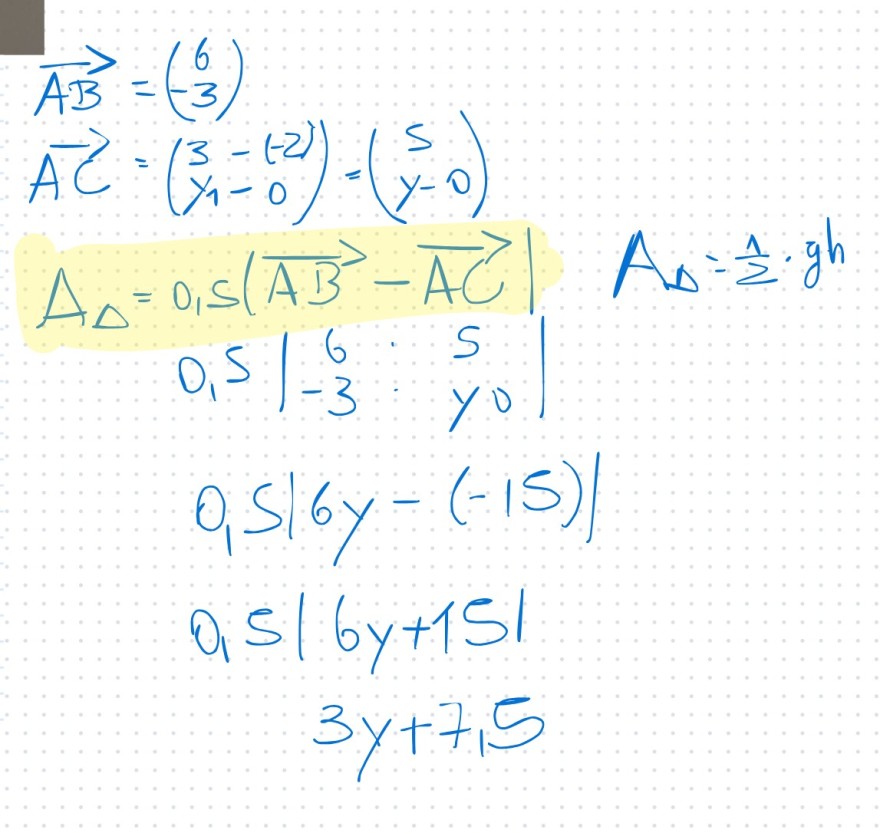 AB = (6 -3)
AC = (3 - (-2) y1 - 0) = (5 y - 0)
A△ = 0,5(AB - AC| A△ = 1/2 · gh
0,5 | 6 : 5
-3 : y 0 |
0,5|6y - (-15)|
0,5|6y+15|
3y+7,5